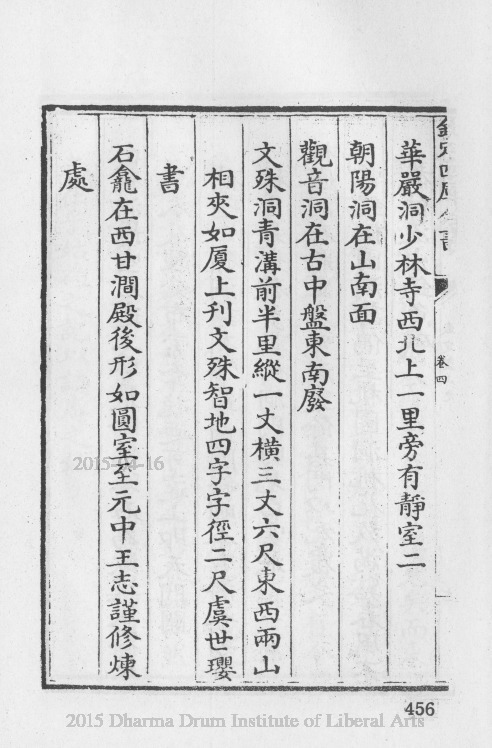 欽定四庫全書
卷四
華嚴洞少林寺西北上一里旁有靜室二
朝陽洞在山南面
觀音洞在古中盤東南廢
文殊洞青溝前半里縱一丈橫三丈六尺東西兩山
相夾如厦上刊文殊智地四字字徑二尺虞世瓔
書
石龕在西甘澗殿後形如圓室至元中王志謹修煉
處
456
2015-04-16
2015 Dharma Drum Institute of Liberal Arts